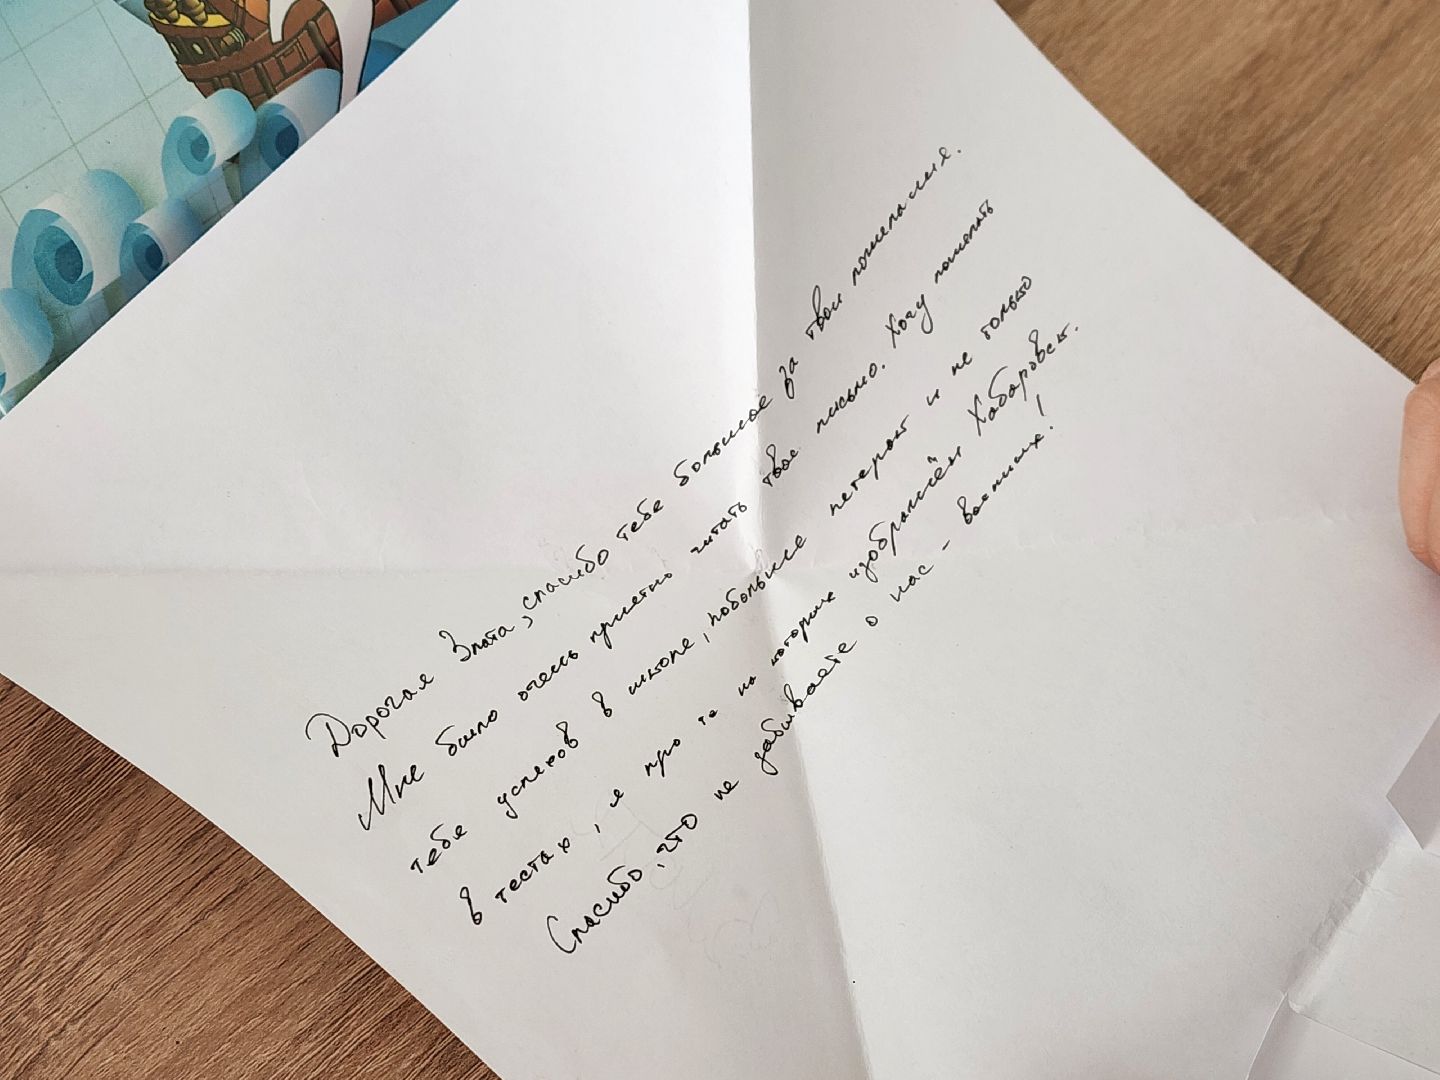 Дорогая Злата, спасибо тебе большое за твои пожелания.
Мне было очень приятно читать твое письмо. Хочу пожелать
тебе успехов в школе, побольше пятерок и не только
в тестах, и про те на которых изображён Хабаровск.
Спасибо, что не забываете о нас - военных!